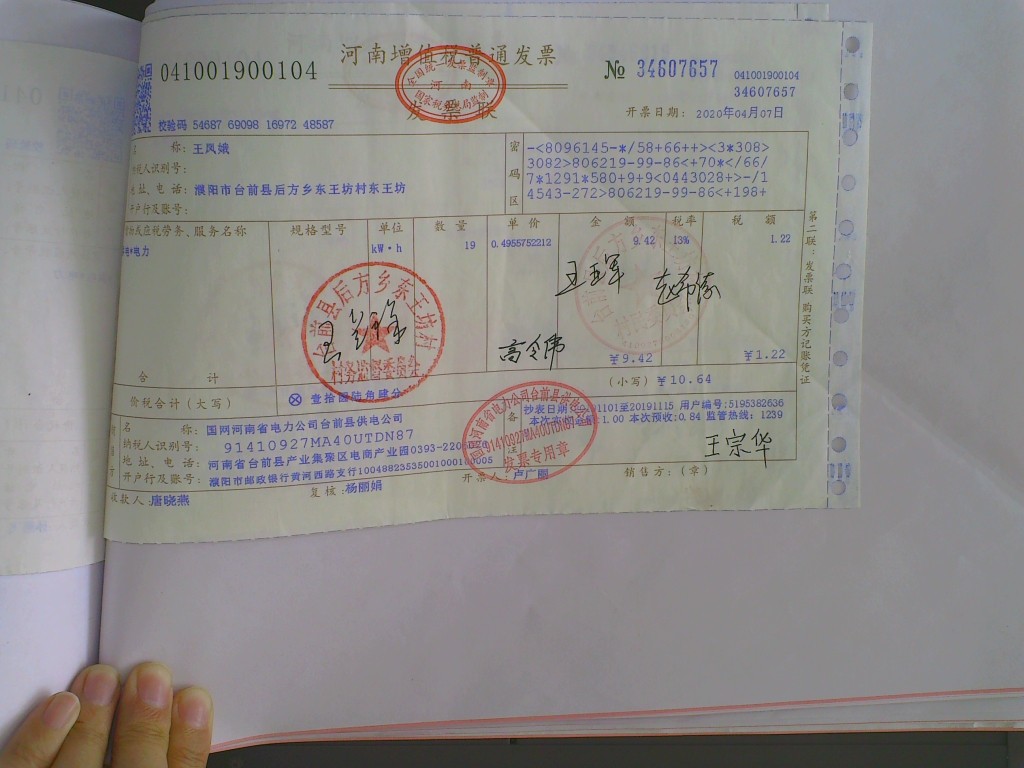 041001900104
河南增值税普通发票
№ 34607657
041001900104
34607657
发票联
开票日期: 2020年04月07日
校验码 54687 69098 16972 48587
名 称: 王凤娥
纳税人识别号:
地址、电话: 濮阳市台前县后方乡东王坊村东王坊
开户行及账号:
密码区
-<8096145-*/58+66++><3*308>
3082>806219-99-86<+70*</66/
7*1291*580+9+9<0443028+>-/1
4543-272>806219-99-86<+198+
货物或应税劳务、服务名称 规格型号 单位 数 量 单 价 金 额 税率 税 额
*电力 kW·h 19 0.4955752212 9.42 13% 1.22
台前县后方乡东王坊村
村务监督委员会
王玉军
高令伟
合 计 ¥9.42 ¥1.22
价税合计(大写) ⊗ 壹拾圆陆角肆分 (小写) ¥10.64
名 称: 国网河南省电力公司台前县供电公司
纳税人识别号: 91410927MA40UTDN87
地址、电话: 河南省台前县产业集聚区电商产业园0393-220
开户行及账号: 濮阳市邮政银行黄河西路支行100488235350010001
备注
抄表日期: 1101至20191115 用户编号:5195382636
1.00 本次预收:0.84 监管热线: 1239
发票专用章
王宗华
收款人: 唐晓燕 复核: 杨丽娟 开票人: 卢广鹏 销售方: (章)
第二联: 发票联 购买方记账凭证